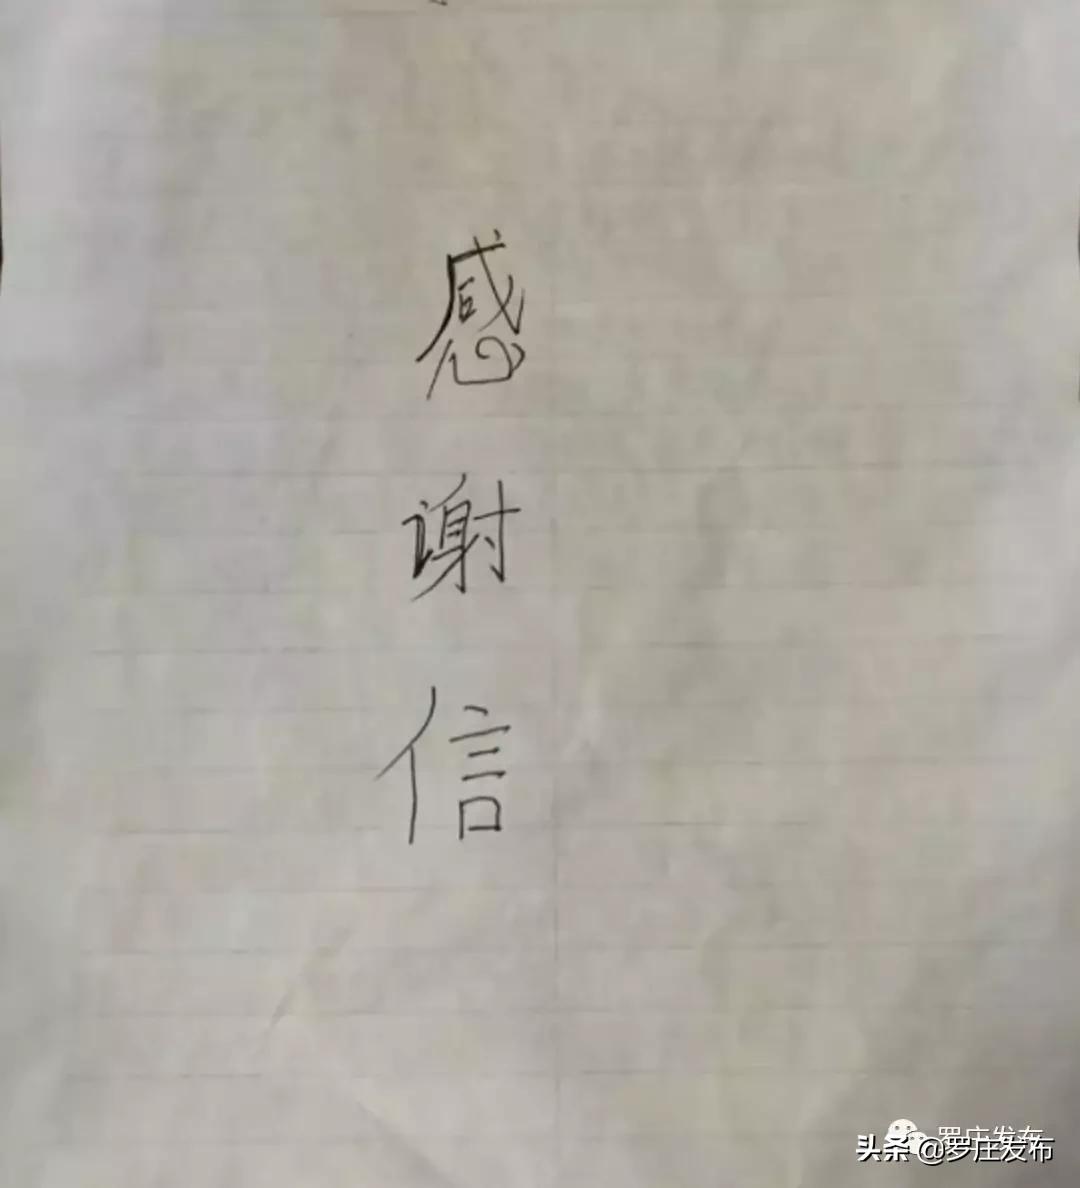 感
谢
信
罗庄发布
头条@罗庄发布